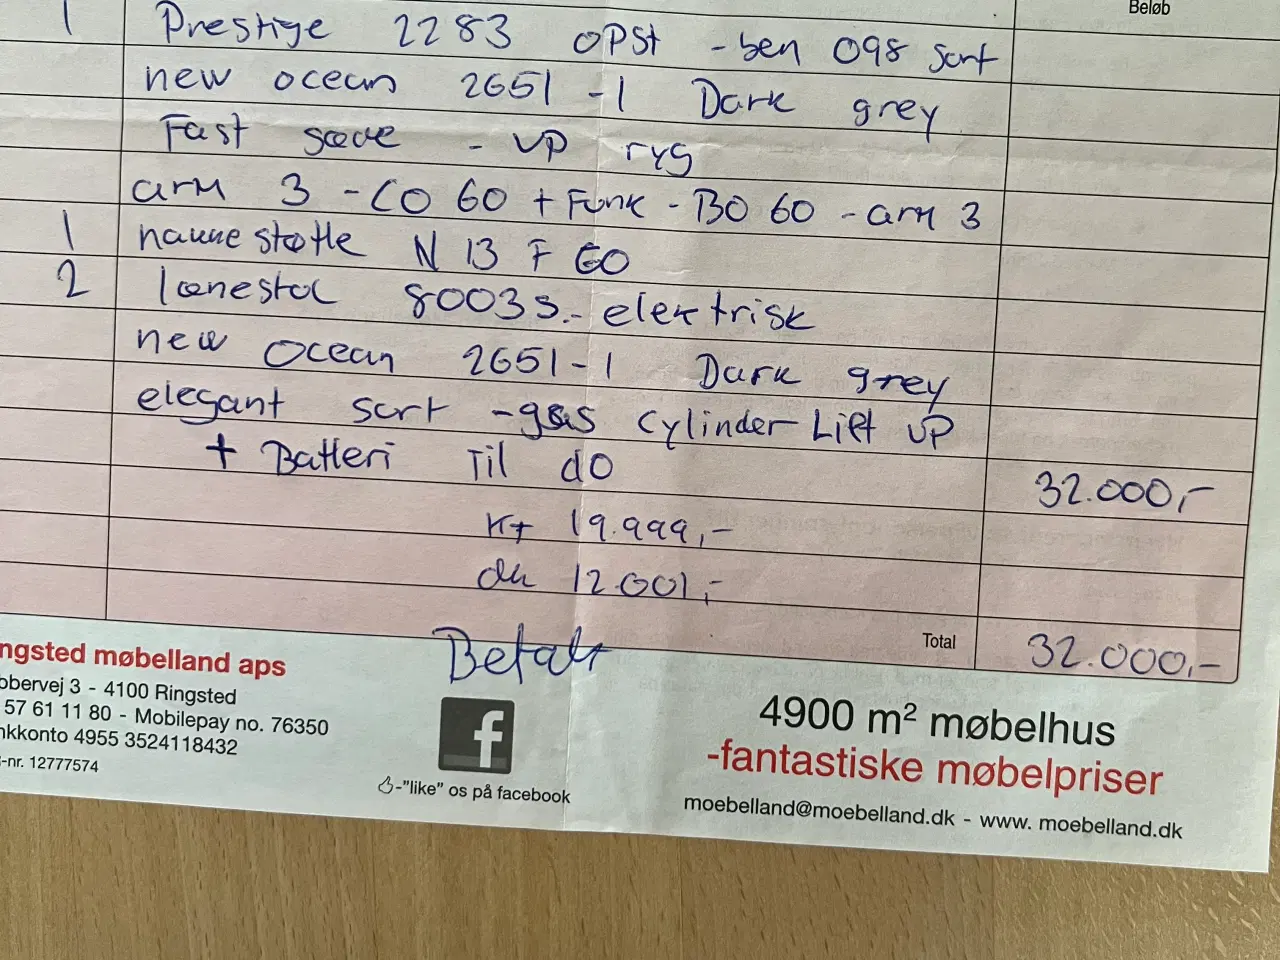 Beløb
1 Prestige 2283 OPSt - ben 098 sort
new ocean 2651-1 Dark grey
Fast sæde - VP ryg
arm 3 - CO 60 + Funk - BO 60 - arm 3
1 nakkestøtte N 13 F 60
2 lænestol 8003S.- elektrisk
new ocean 2651-1 Dark grey
elegant sort - gas cylinder Lift UP
+ Batteri Til do 32.000,-
Kt 19.999,-
dk 12.001,-
Total 32.000,-
Betalt
ngsted møbelland aps
bbervej 3 - 4100 Ringsted
57 61 11 80 - Mobilepay no. 76350
nkkonto 4955 3524118432
-nr. 12777574
f
-"like" os på facebook
4900 m² møbelhus
-fantastiske møbelpriser
moebelland@moebelland.dk - www. moebelland.dk